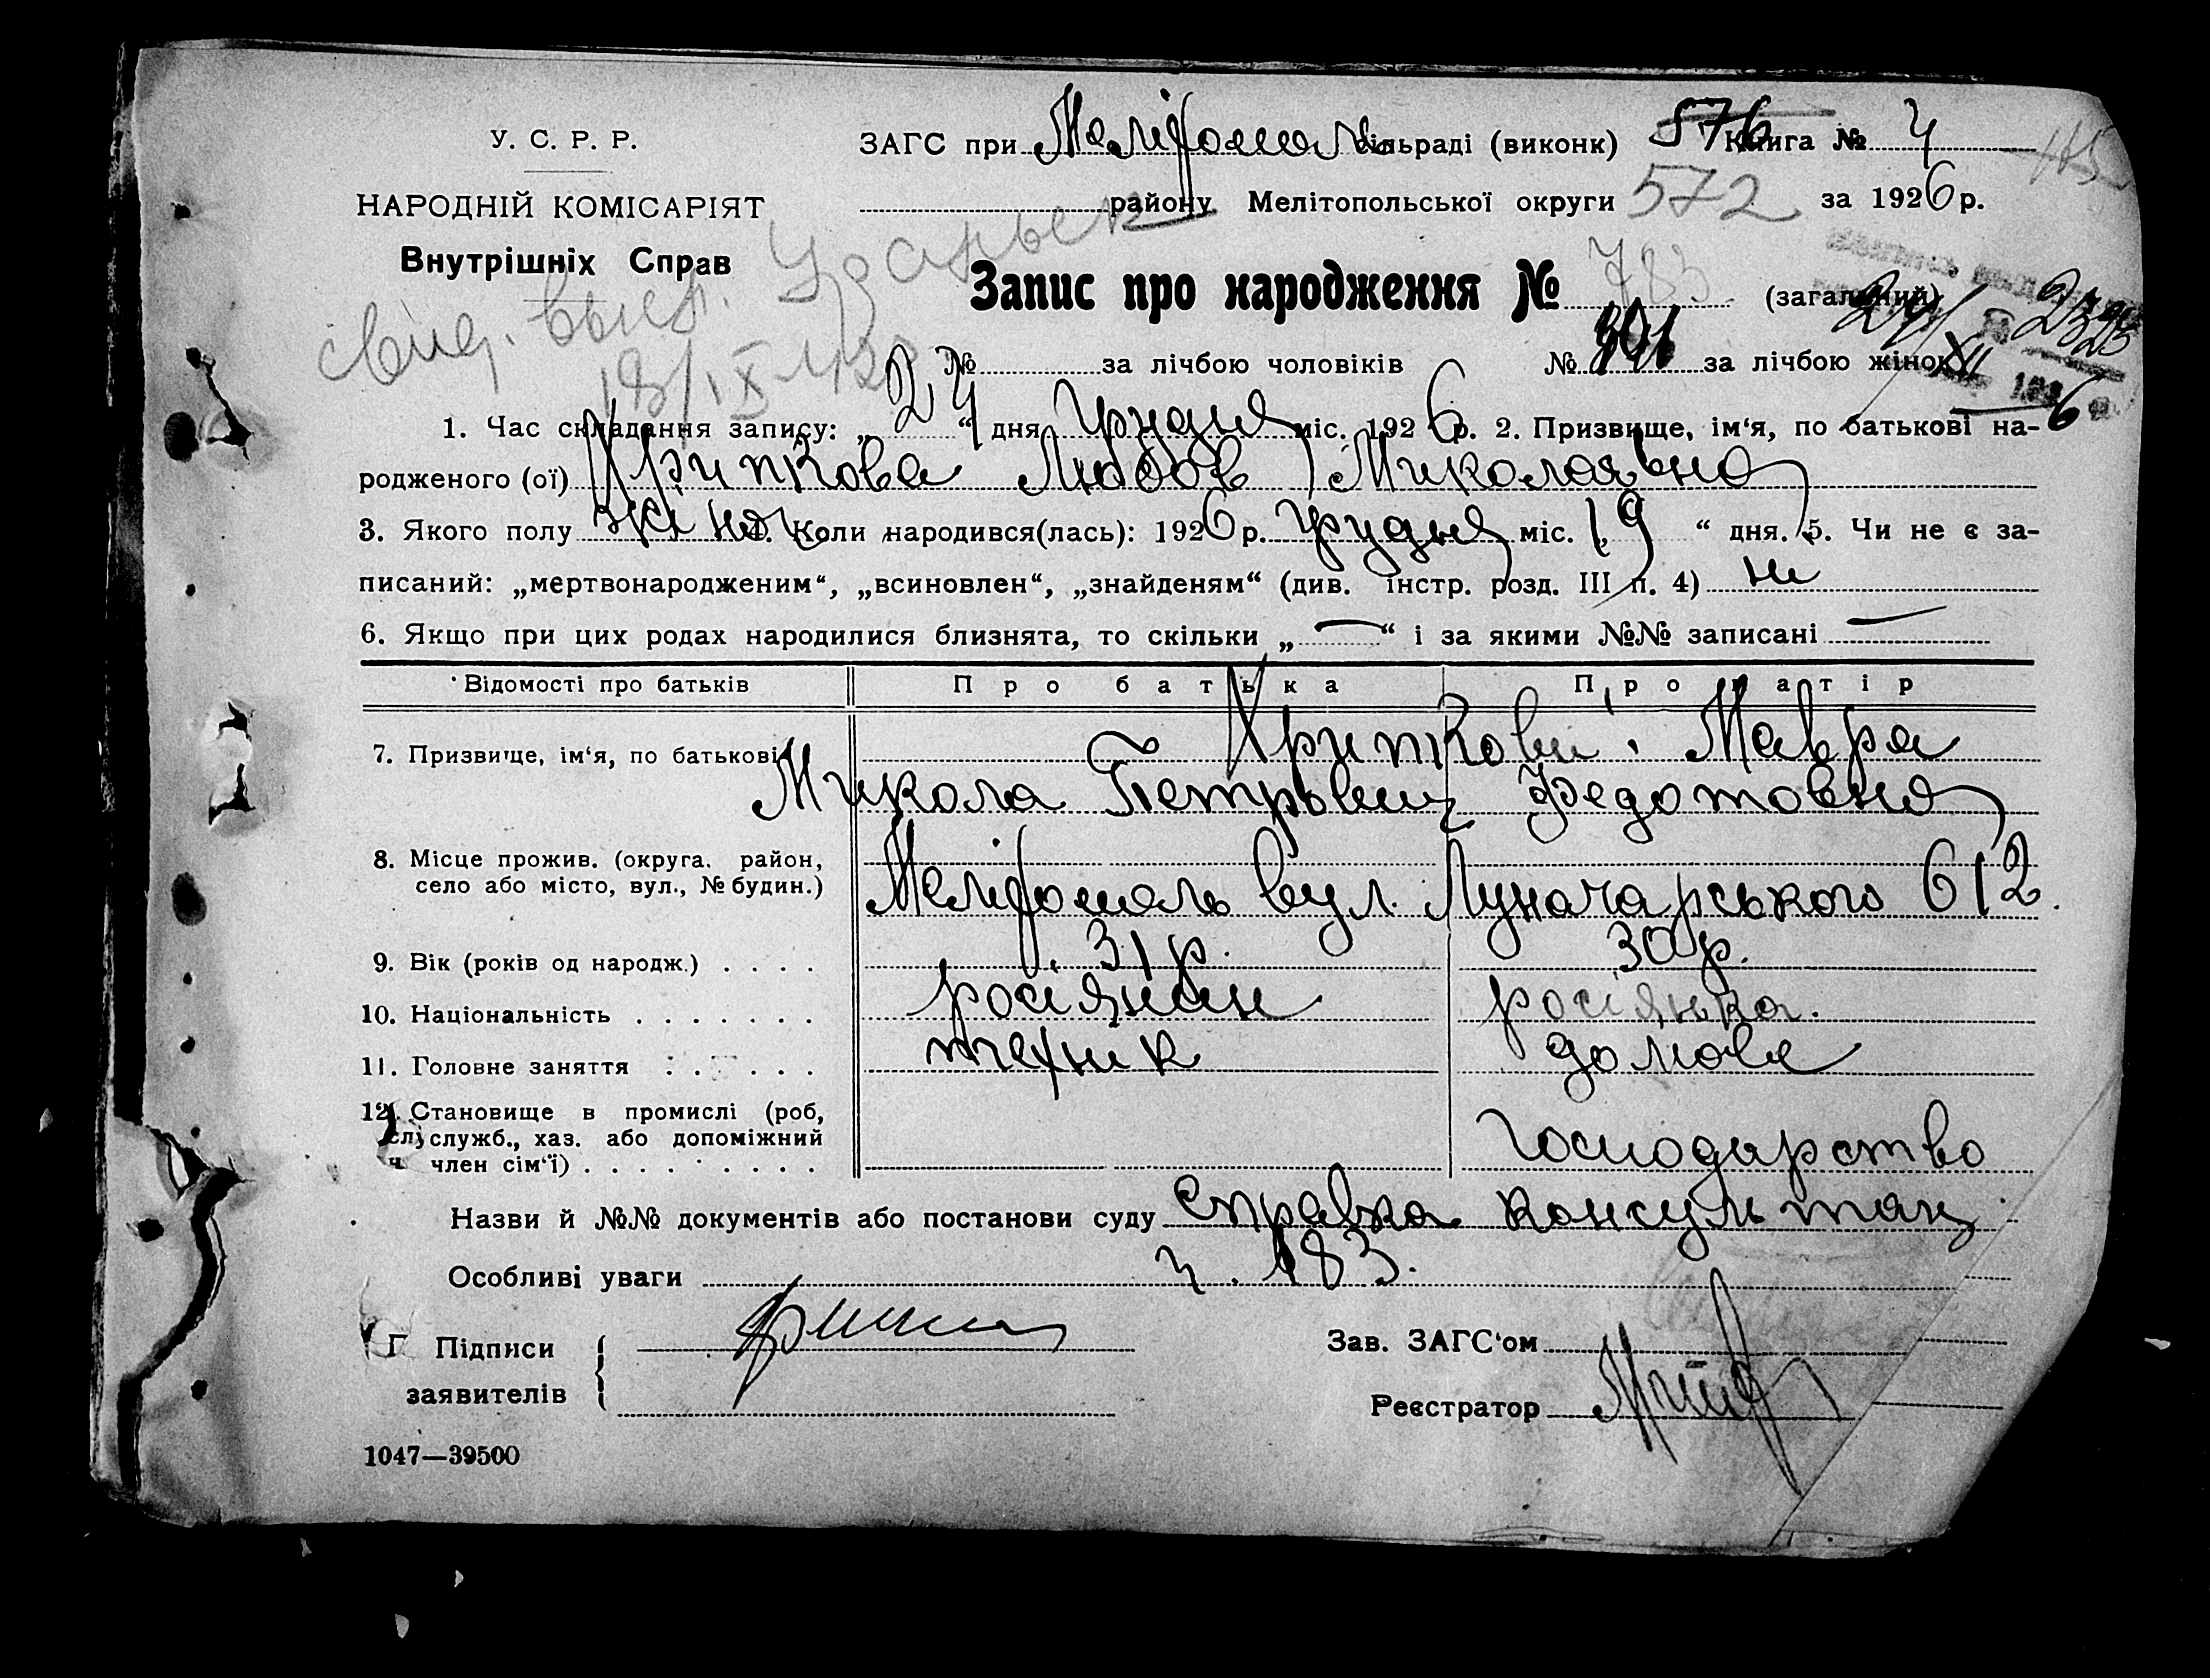 У. С. Р. Р.
НАРОДНІЙ КОМІСАРІЯТ
Внутрішніх Справ
ЗАГС при сільраді (виконк) 576 Книга № 4
району Мелітопольської округи 572 за 1926 р.
Запис про народження № 783 (загальний)
№ за лічбою чоловіків № за лічбою жінок
1. Час складання запису: „24“ дня грудня міс. 1926 р. 2. Призвище, ім‘я, по батькові на-
родженого (ої) Хрипкова Любов Миколаявна
3. Якого полу жіноч 4. Коли народився(лась): 1926 р. грудня міс. „19“ дня. 5. Чи не є за-
писаний: „мертвонародженим“, „всиновлен“, „знайденям“ (див. інстр. розд. III п. 4) ні
6. Якщо при цих родах народилися близнята, то скільки „—“ і за якими №№ записані —
Відомості про батьків Про батька Про матір
7. Призвище, ім‘я, по батькові Хрипкови Мавра
Микола Петрович Федотовна
8. Місце прожив. (округа, район,
село або місто, вул., № будин.) вул. Луначарського 612.
9. Вік (років од народж.) . . . . 31 р. 30 р.
10. Національність . . . . . . . росіянин росіянка.
11. Головне заняття . . . . . . технік домове
12. Становище в промислі (роб,
служб., хаз. або допоміжний господарство
член сім‘ї) . . . . . . . . .
Назви й №№ документів або постанови суду справка консультац
Особливі уваги ч. 183.
Підписи Зав. ЗАГС‘ом
заявителів Реєстратор
1047—39500